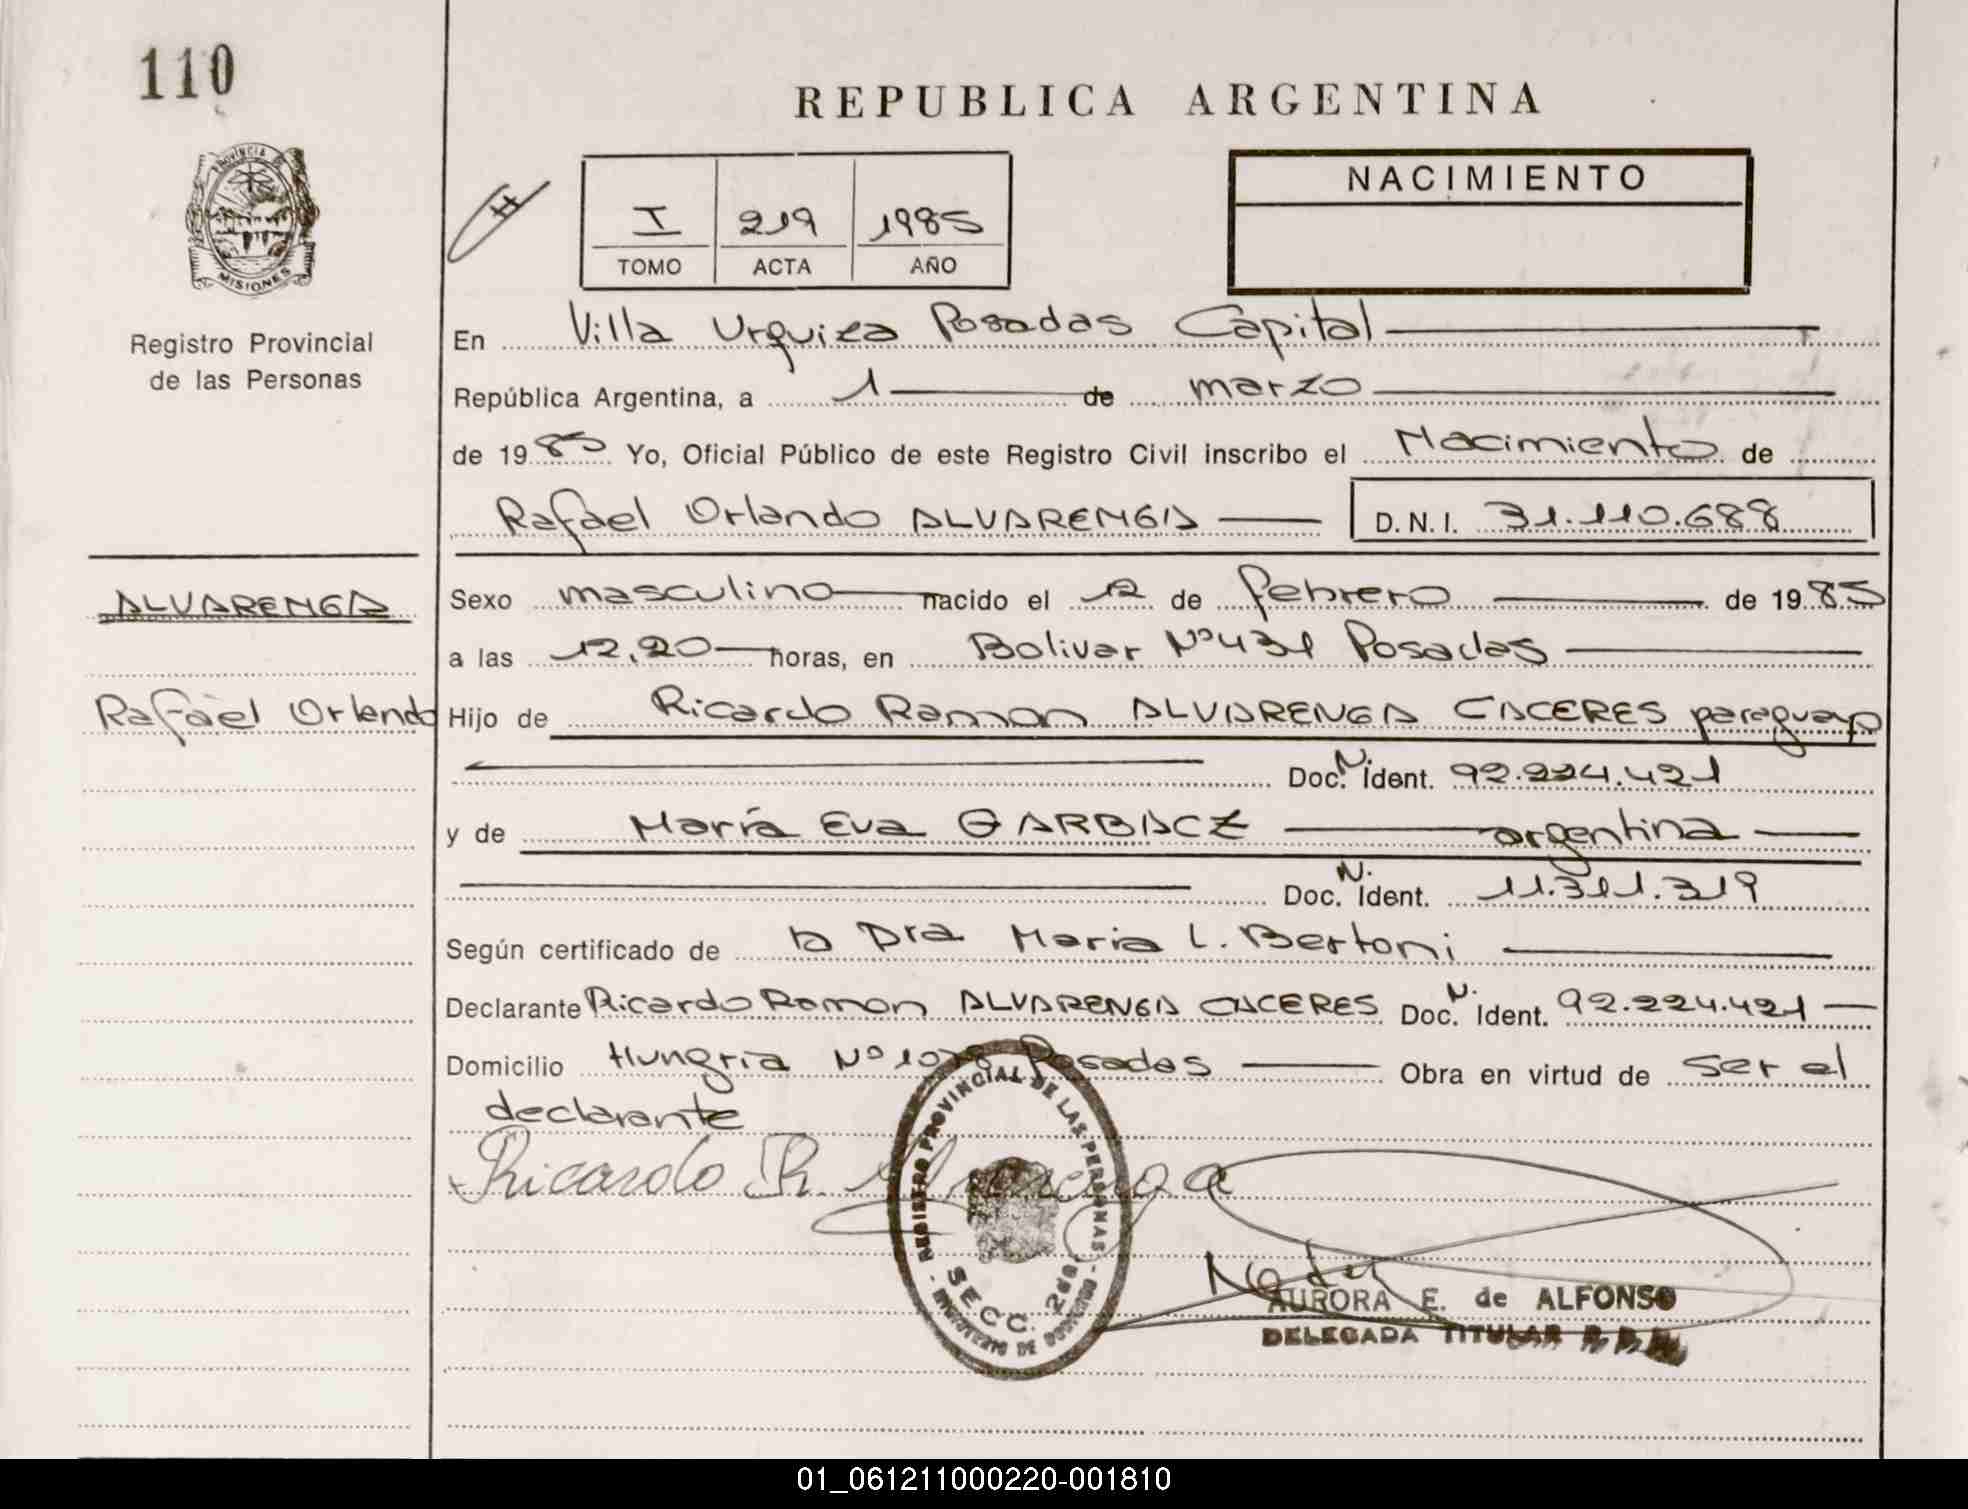 110
REPUBLICA ARGENTINA
PROVINCIA DE
MISIONES
Registro Provincial
de las Personas
I 219 1985
TOMO ACTA AÑO
NACIMIENTO
En Villa Urquiza Posadas Capital
República Argentina, a 1 de marzo
de 1985 Yo, Oficial Público de este Registro Civil inscribo el Nacimiento de
Rafael Orlando ALVARENGA D.N.I. 31.110.688
ALVARENGA
Rafael Orlando
Sexo masculino nacido el 12 de febrero de 1985
a las 12,20 horas, en Bolivar Nº431 Posadas
Hijo de Ricardo Ramon ALVARENGA CACERES paraguayo
Doc. N. Ident. 92.224.421
y de María Eva GARBACZ argentina
Doc. N. Ident. 11.311.319
Según certificado de la Dra Maria L. Bertoni
Declarante Ricardo Ramon ALVARENGA CACERES Doc. N. Ident. 92.224.421
Domicilio Hungria Nº Posadas Obra en virtud de ser el
declarante
Ricardo R. Alvarenga
REGISTRO PROVINCIAL DE LAS PERSONAS
SECC. 2da
AURORA E. de ALFONSO
DELEGADA TITULAR
01_061211000220-001810